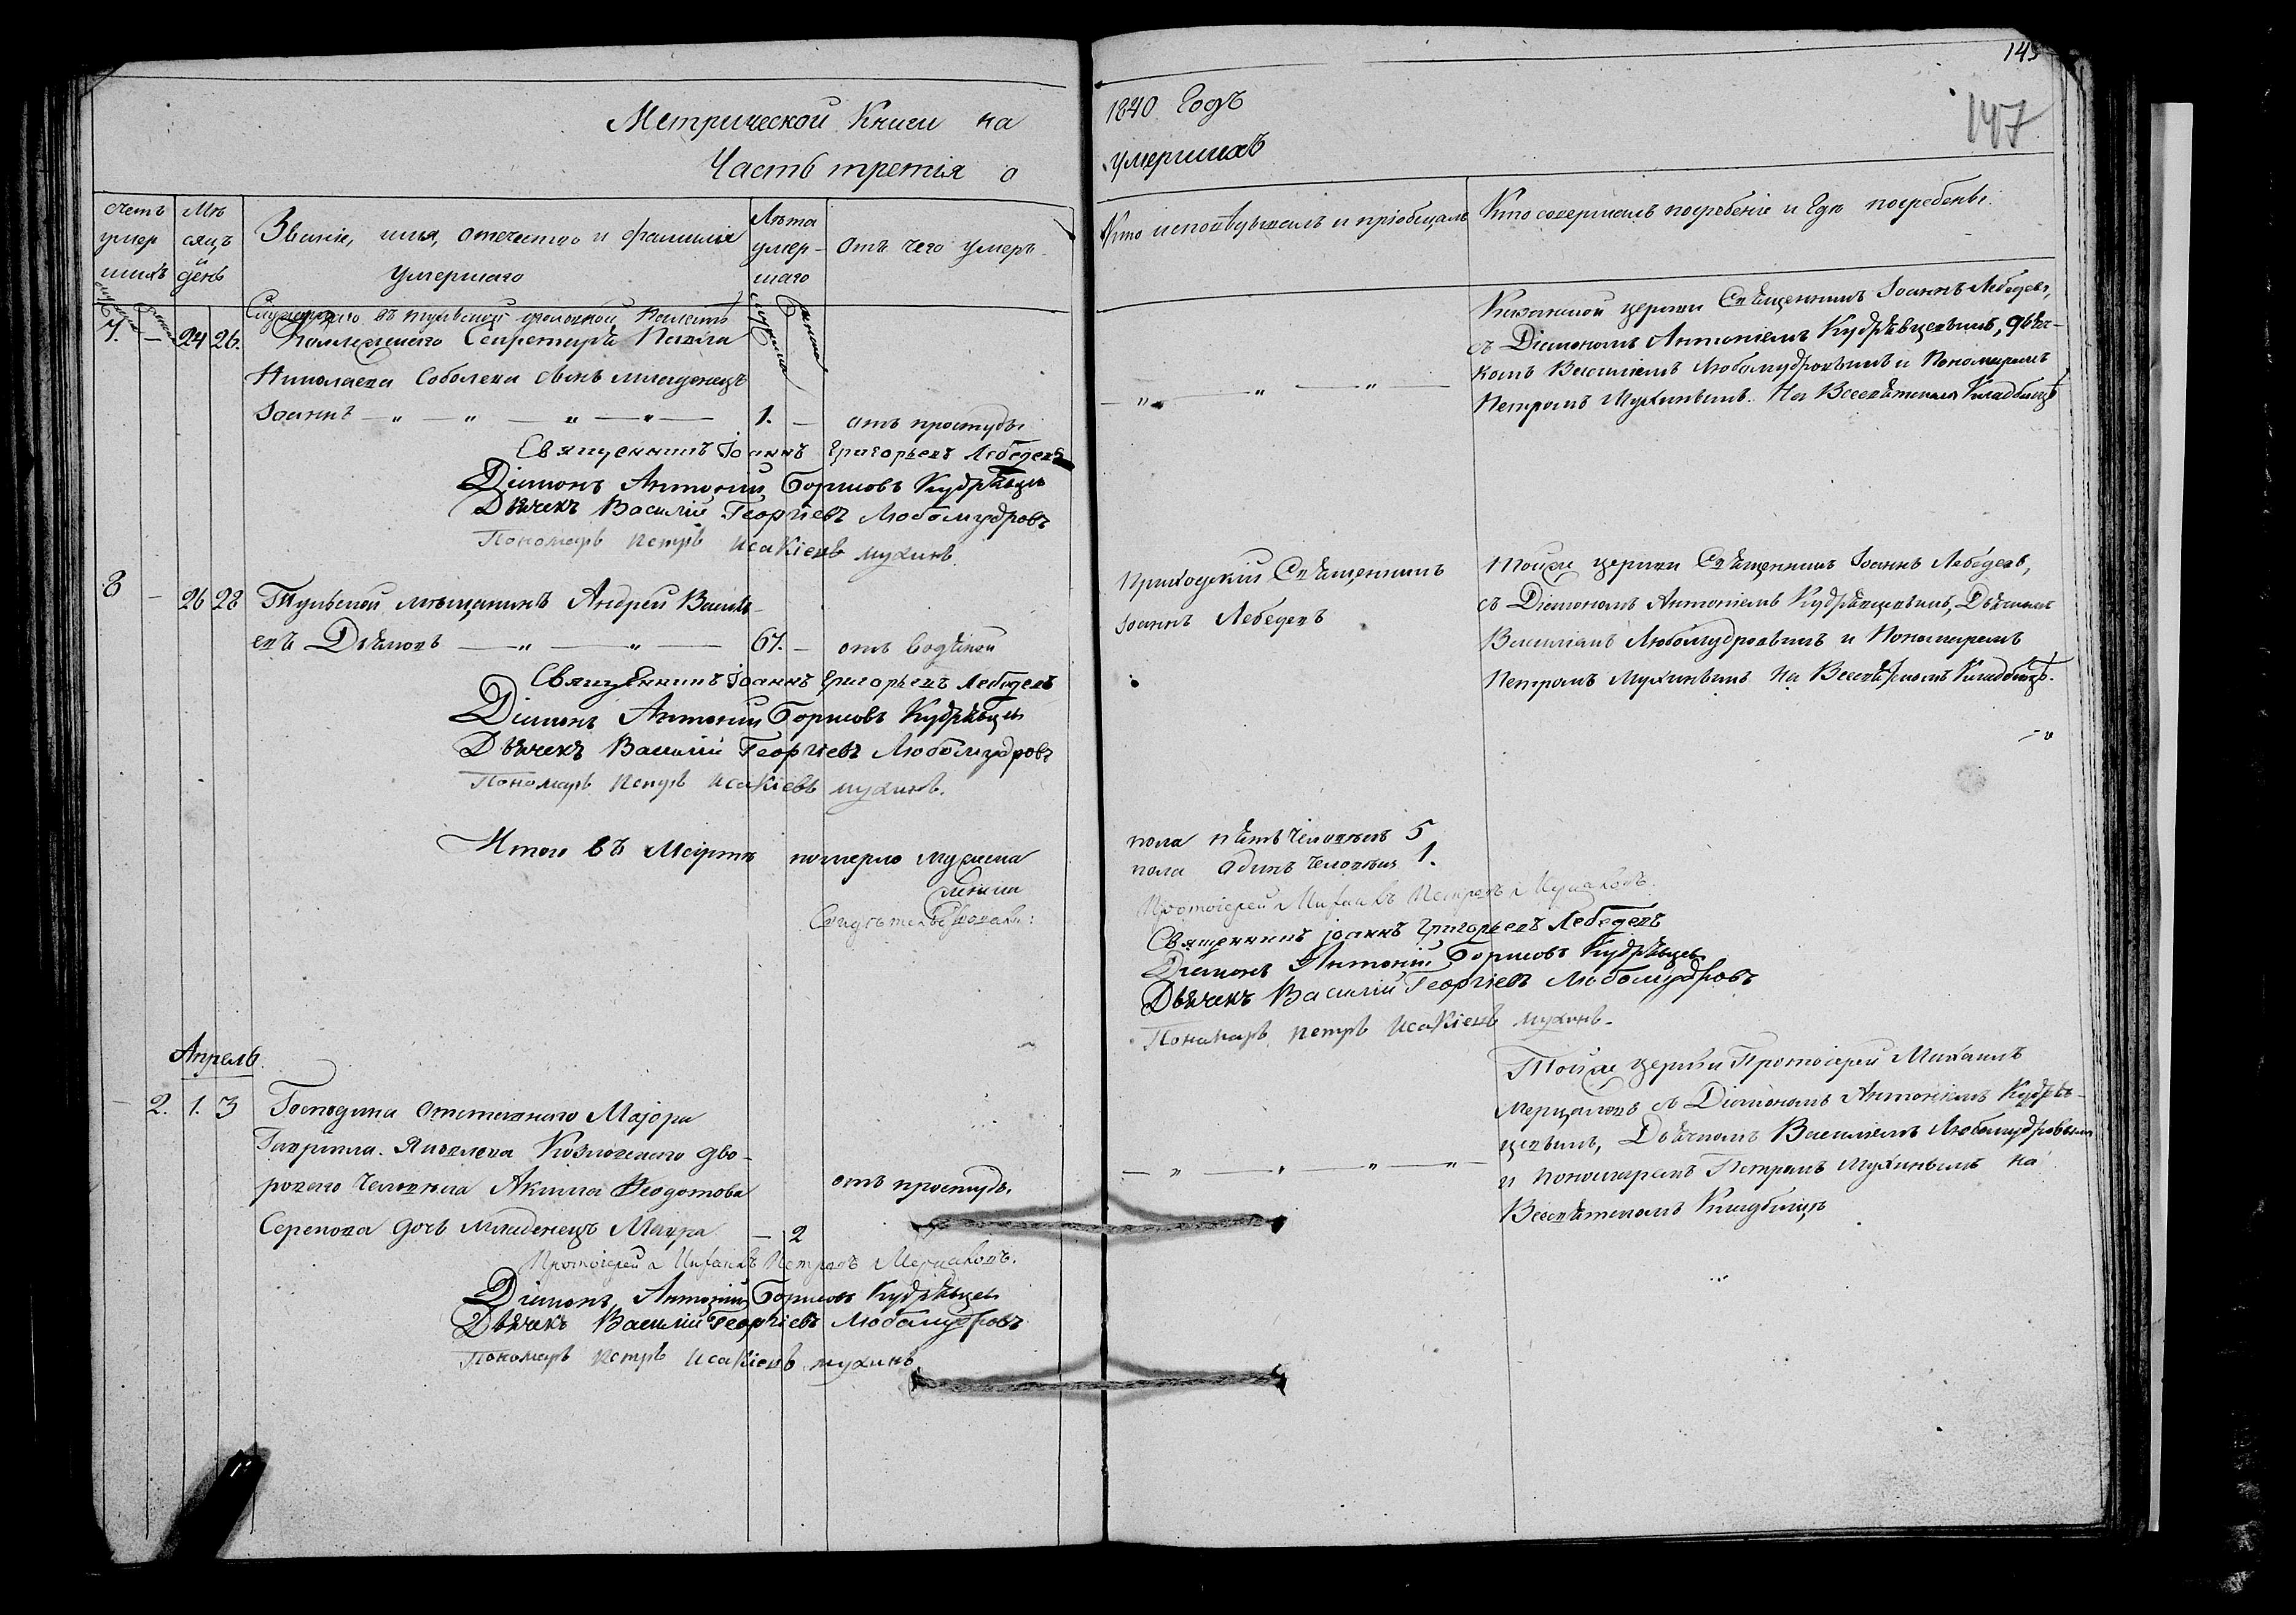 145
147
Метрической Книги на
1840 Годъ
Часть третія о
умершихъ
Счетъ умер шихъ
Мѣ сяцъ и день
Званіе, имя, отечество и фамилія
умершаго
Лѣта умер- шаго
Отъ чего умеръ
Кто исповѣдывалъ и пріобщалъ
Кто совершалъ погребеніе и гдѣ погребены
Служащаго въ тульской уголовной Палатѣ
7. — 24 26. Коллежскаго Секретаря Павла
Николаева Соболева сынъ младенецъ
Іоаннъ — „ — „ — „ — „ — 1. — отъ простуды
Казанской церкви Священникъ Іоаннъ Лебедевъ,
съ Діакономъ Антоніемъ Кудрявцевымъ, дьяч-
комъ Василіемъ Любомудровымъ и Пономаремъ
Петромъ Мухинымъ. На Всесвятскомъ Кладбищѣ
Священникъ Іоаннъ Григорьевъ Лебедевъ
Діаконъ Антоний Борисовъ Кудрявцевъ
Дьячекъ Василій Георгіевъ Любомудровъ
Пономарь Петръ Исакіевъ Мухинъ.
8 — 26 28 Тульской мѣщанинъ Андрей Василь-
евъ Дьяковъ — „ — „ — 67. — отъ водяной
Приходскій Священникъ
Іоаннъ Лебедевъ
Тойже церкви Священникъ Іоаннъ Лебедевъ,
съ Діакономъ Антоніемъ Кудрявцевымъ, Дьячкомъ
Василіемъ Любомудровымъ и Пономаремъ
Петромъ Мухинымъ на Всесвятскомъ Кладбищѣ.
Священникъ Іоаннъ Григорьевъ Лебедевъ
Діаконъ Антоний Борисовъ Кудрявцевъ
Дьячекъ Василій Георгіевъ Любомудровъ
Пономарь Петръ Исакіевъ Мухинъ.
Итого въ Мартѣ померло мужеска
пола пять человѣкъ 5
женска
пола одинъ человѣкъ 1.
Свидѣтельствовали:
Протоіерей Михаилъ Петровъ
Священникъ Іоаннъ Григорьевъ Лебедевъ
Діаконъ Антоній Борисовъ Кудрявцевъ
Дьячекъ Василій Георгіевъ Любомудровъ
Пономарь Петръ Исакіевъ Мухинъ.
Апрель
— 2. 1. 3 Господина отставнаго Маіора
Гаврила Яковлева дво-
роваго человѣка Акима Ѳеодотова
отъ простуды
дочь младенецъ Мавра — 2
Тойже церкви Протоіерей Михаилъ
Мерцаловъ съ Діакономъ Антоніемъ Кудряв-
цевымъ, Дьячкомъ Василіемъ Любомудровымъ
и пономаремъ Петромъ Мухинымъ на
Всесвятскомъ Кладбищѣ
Протоіерей Михаилъ Петровъ Мерцаловъ.
Діаконъ Антоній Борисовъ Кудрявцевъ
Дьячекъ Василій Георгіевъ Любомудровъ
Пономарь Петръ Исакіевъ Мухинъ